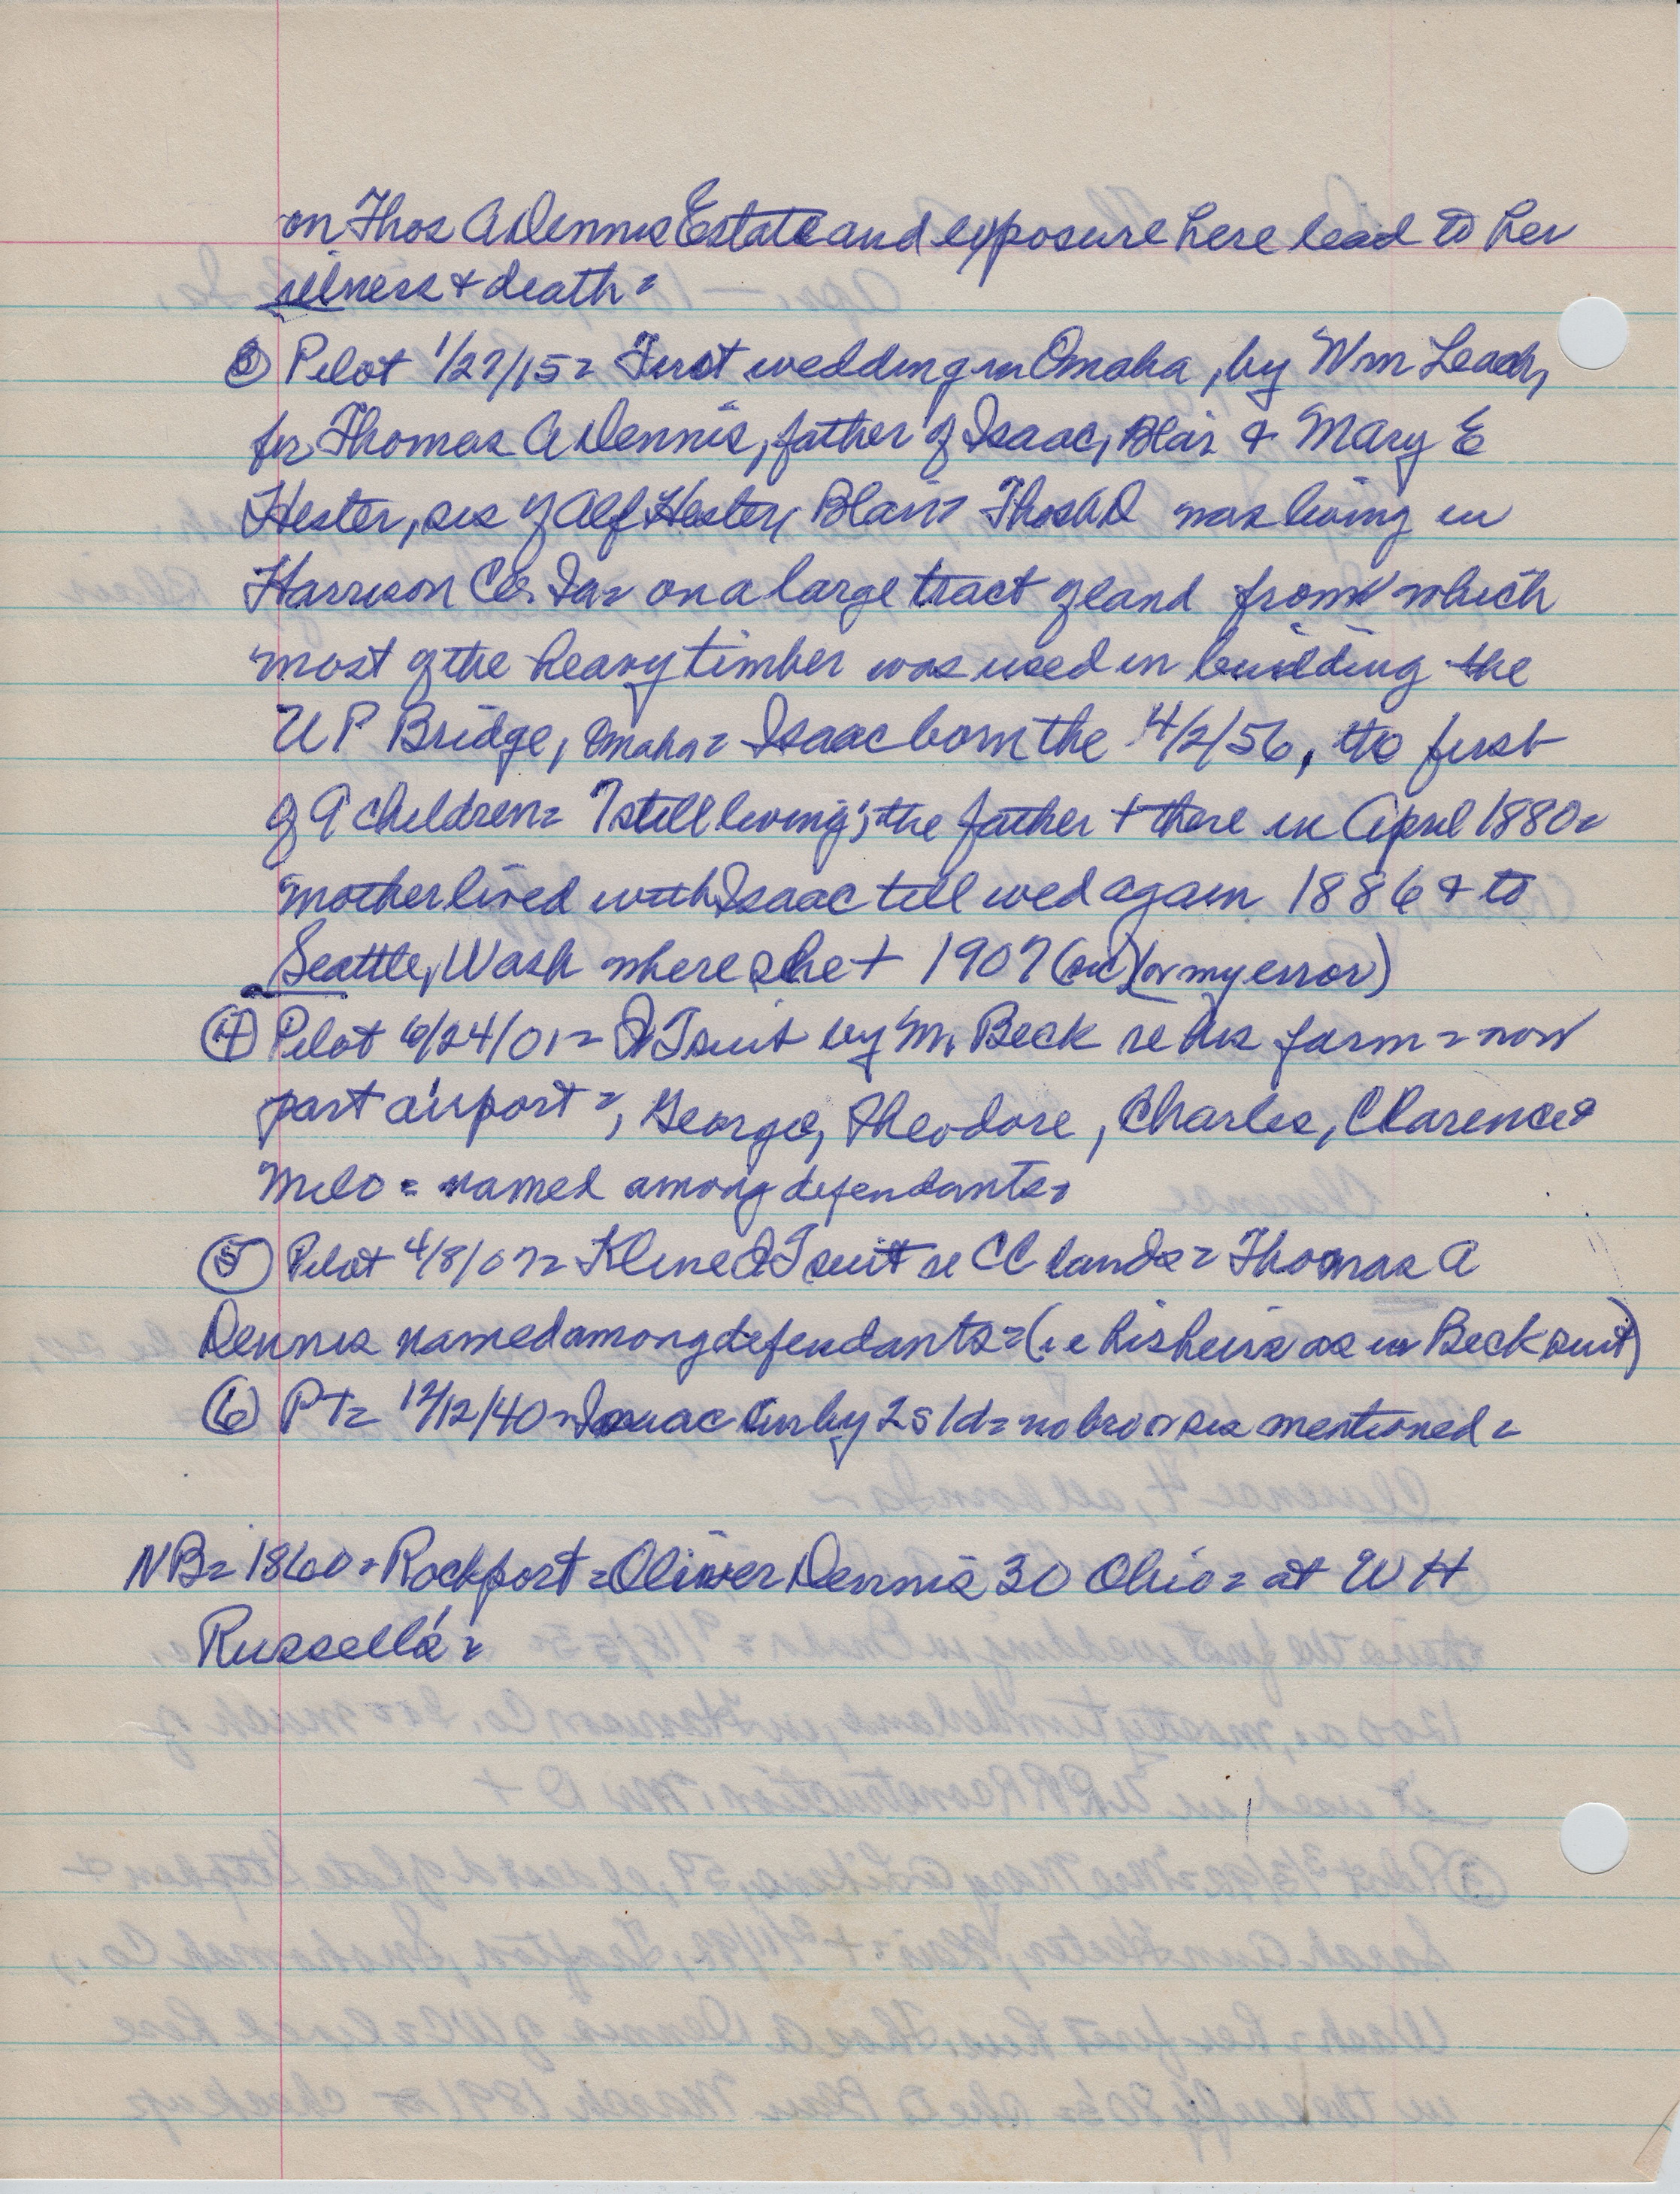 on Thos A Dennis Estate and exposure here lead to her
illness & death =
③ Pilot 1/27/15 = First wedding in Omaha, by Wm Leach,
for Thomas A Dennis, father of Isaac, Blair & Mary E
Hester, sis of Alf Hester, Blair = Thos A D was living in
Harrison Co. Ia = on a large tract of land from which
most of the heavy timber was used in building the
U P Bridge, Omaha = Isaac born the 4/2/56, the first
of 9 children = 7 still living; the father + there in April 1880 =
mother lived with Isaac till wed again 1886 & to
Seattle, Wash where she + 1907 (sic) (or my error)
④ Pilot 6/24/01 = QT suit by M. Beck re his farm = now
part airport =, George, Theodore, Charles, Clarence &
Milo = named among defendants =
⑤ Pilot 4/8/07 = Kline QT suit re CC lands = Thomas A
Dennis named among defendants = (i e his heirs as in Beck suit)
⑥ PT = 12/12/40 = Isaac sur by 2s 1d = no bro or sis mentioned =
NB = 1860 = Rockport = Oliver Dennis 30 Ohio = at W H
Russell's =